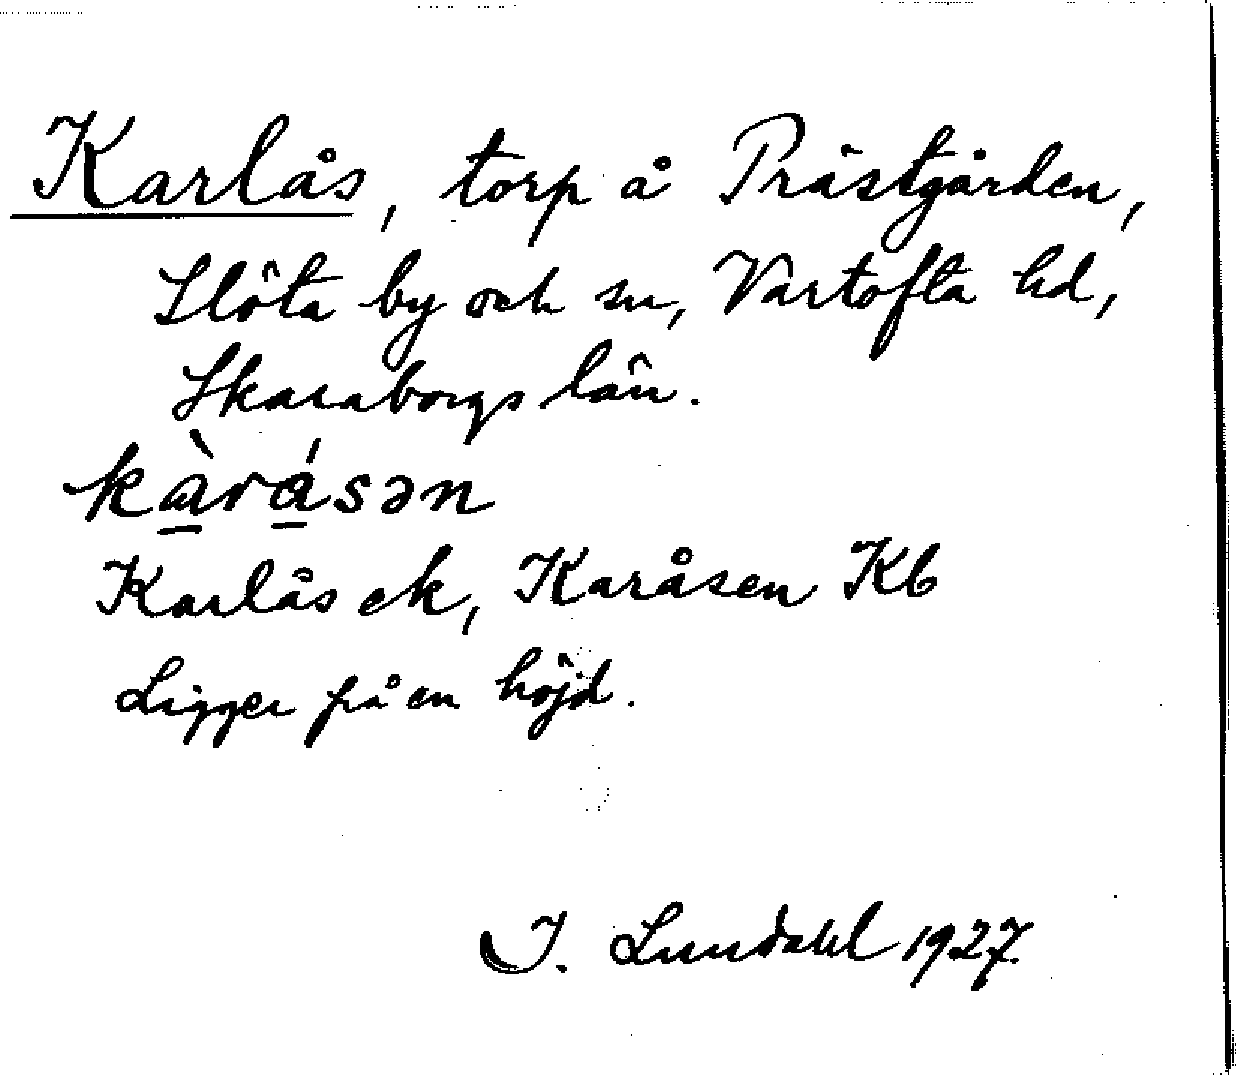 Karlås, torp å Prästgården,
Slöta by och sn, Vartofta hd,
Skaraborgs län.
kàrásən
Karlås ek, Karåsen Kb
Ligger på en höjd.
I. Lundahl 1927.